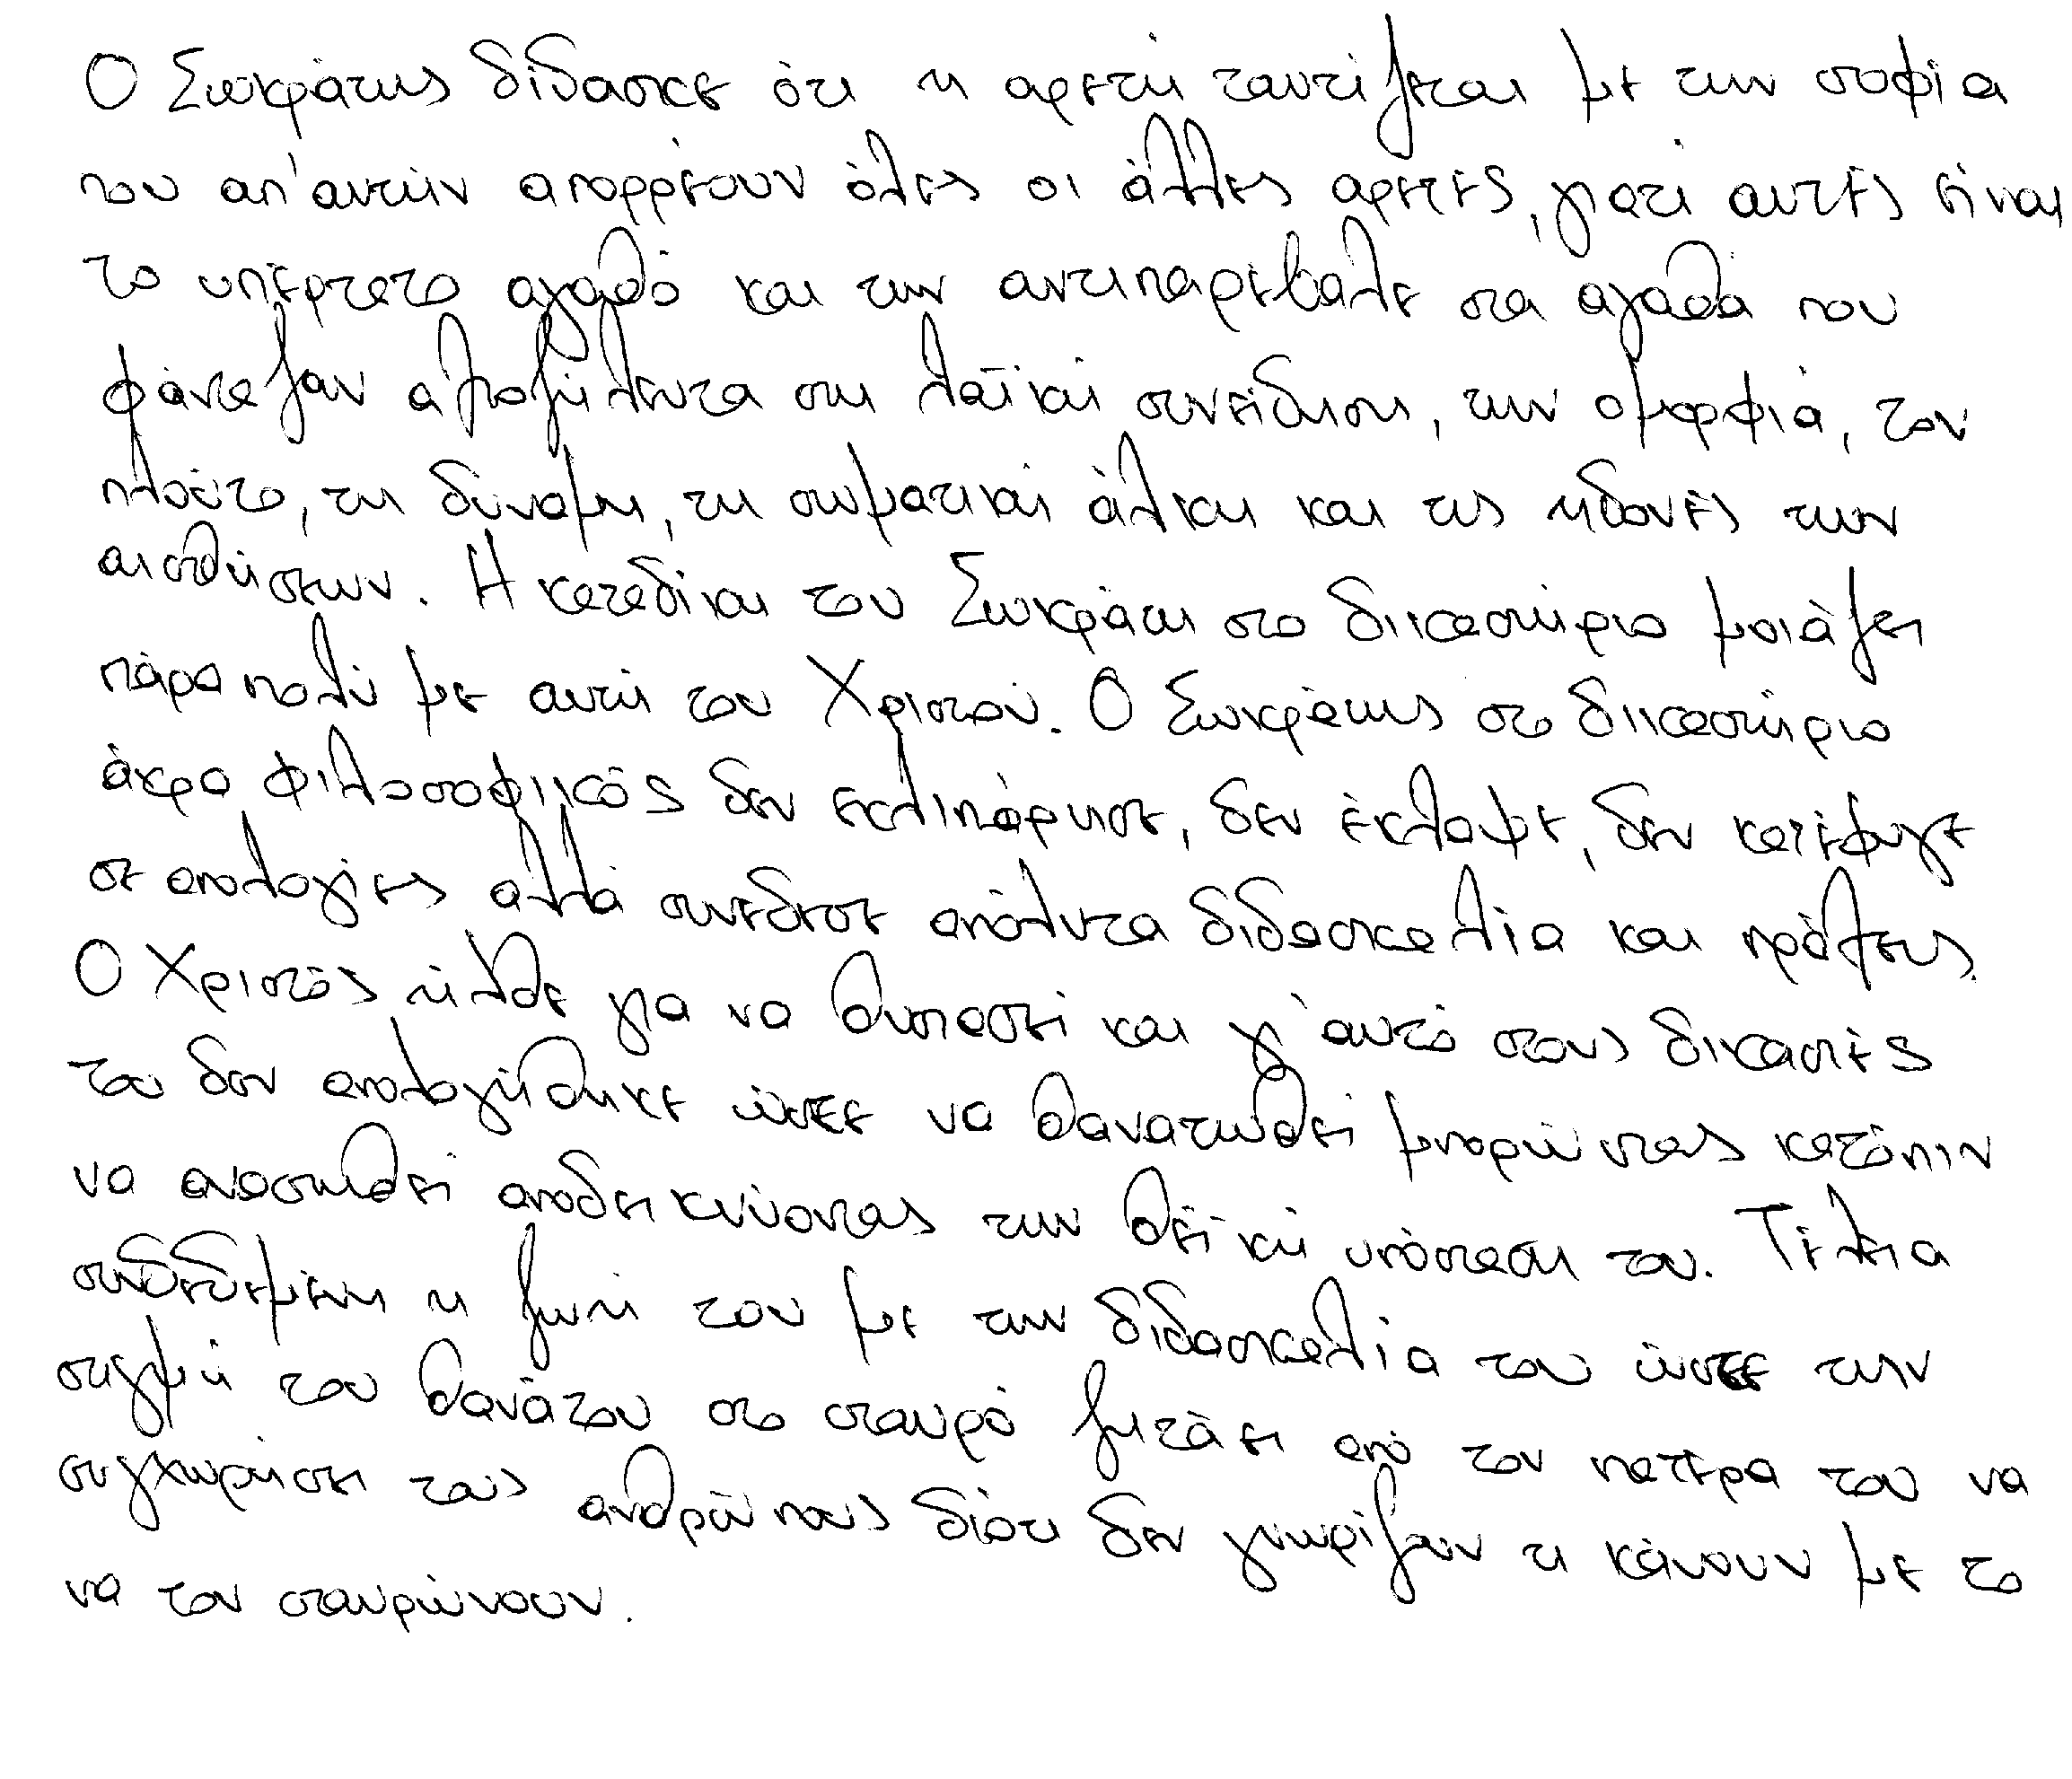 Ο Σωκράτης δίδασκε ότι η αρετή ταυτίζεται με την σοφία
που απ' αυτήν απορρέουν όλες οι άλλες αρετές, γιατί αυτές είναι
το υπέρτατο αγαθό και την αντιπαρέβαλε στα αγαθά που
φάνταζαν αξιοζήλευτα στη λαϊκή συνείδηση, την ομορφιά, τον
πλούτο, τη δύναμη, τη σωματική άλκη και τις ηδονές των
αισθήσεων. Η καταδίκη του Σωκράτη στο δικαστήριο μοιάζει
πάρα πολύ με αυτή του Χριστού. Ο Σωκράτης στο δικαστήριο
άκρα φιλοσοφικός δεν εκλιπάρησε, δεν έκλαψε, δεν κατέφυγε
σε απολογίες αλλά συνέδεσε απόλυτα διδασκαλία και πράξεις.
Ο Χριστός ήλθε για να θυσιαστεί και γι' αυτό στους δικαστές
του δεν απολογήθηκε ώστε να θανατωθεί μπορώντας κατόπιν
να αναστηθεί αποδεικνύοντας την θεϊκή υπόσταση του. Τέλεια
συνδεδεμένη η ζωή του με την διδασκαλία του ώστε την
στιγμή του θανάτου στο σταυρό ζητάει από τον πατέρα του να
συγχωρήσει τους ανθρώπους διότι δεν γνωρίζουν τι κάνουν με το
να τον σταυρώνουν.